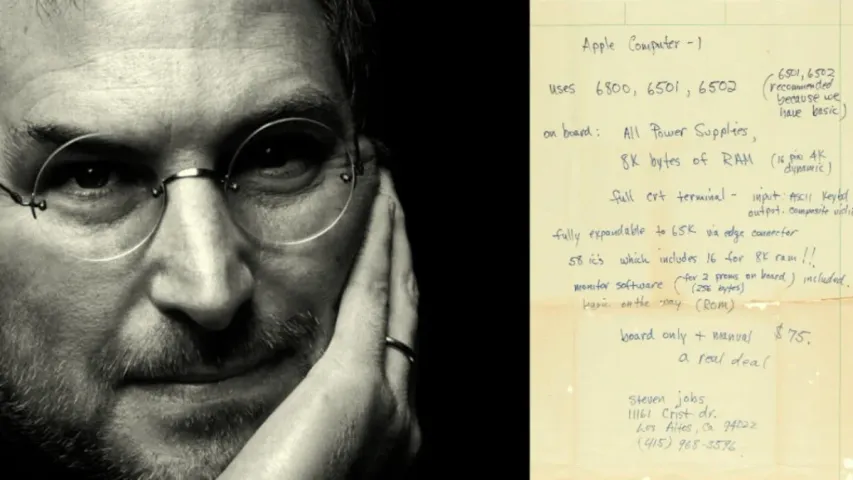 Apple Computer -1
uses 6800, 6501, 6502 (6501, 6502
recommended
because we
have basic)
on board: All Power Supplies,
8K bytes of RAM (16 pin 4K
dynamic)
full crt terminal - input: ASCII Keybd
output: composite video
fully expandable to 65K via edge connector
58 ic's which includes 16 for 8K ram!!
monitor software (for 2 proms on board) included.
(256 bytes)
basic on the way (ROM)
board only + manual $75.
a real deal
steven jobs
11161 Crist dr.
Los Altos, Ca 94022
(415) 968-3596